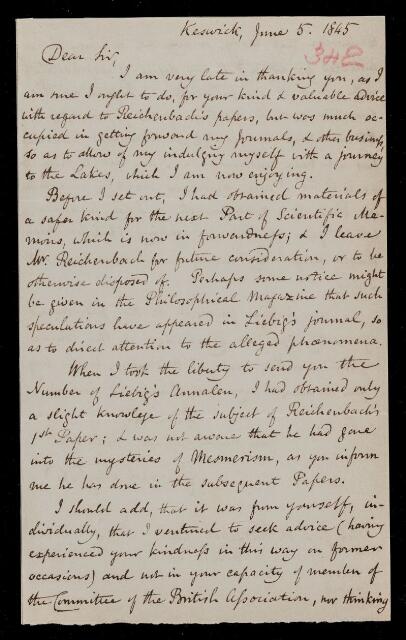 Keswick, June 5. 1845
348
Dear Sir,
I am very late in thanking you, as I
am sure I ought to do, for your kind & valuable advice
with regard to Reichenbach's papers, but was much oc-
cupied in getting forward my Journals, & other business,
so as to allow of my indulging myself with a journey
to the Lakes, which I am now enjoying.
Before I set out, I had obtained materials of
a safer kind for the next Part of Scientific Me-
moirs, which is now in forwardness; & I leave
Mr. Reichenbach for future consideration, or to be
otherwise disposed of. Perhaps some notice might
be given in the Philosophical Magazine that such
speculations have appeared in Liebig's journal, so
as to direct attention to the alleged phænomena.
When I took the liberty to send you the
Number of Liebig's Annalen, I had obtained only
a slight knowlege of the subject of Reichenbach's
1st Paper; & was not aware that he had gone
into the mysteries of Mesmerism, as you inform
me he has done in the subsequent Papers.
I should add, that it was from yourself, in-
dividually, that I ventured to seek advice (having
experienced your kindness in this way on former
occasions) and not in your capacity of member of
the Committee of the British Association, nor thinking